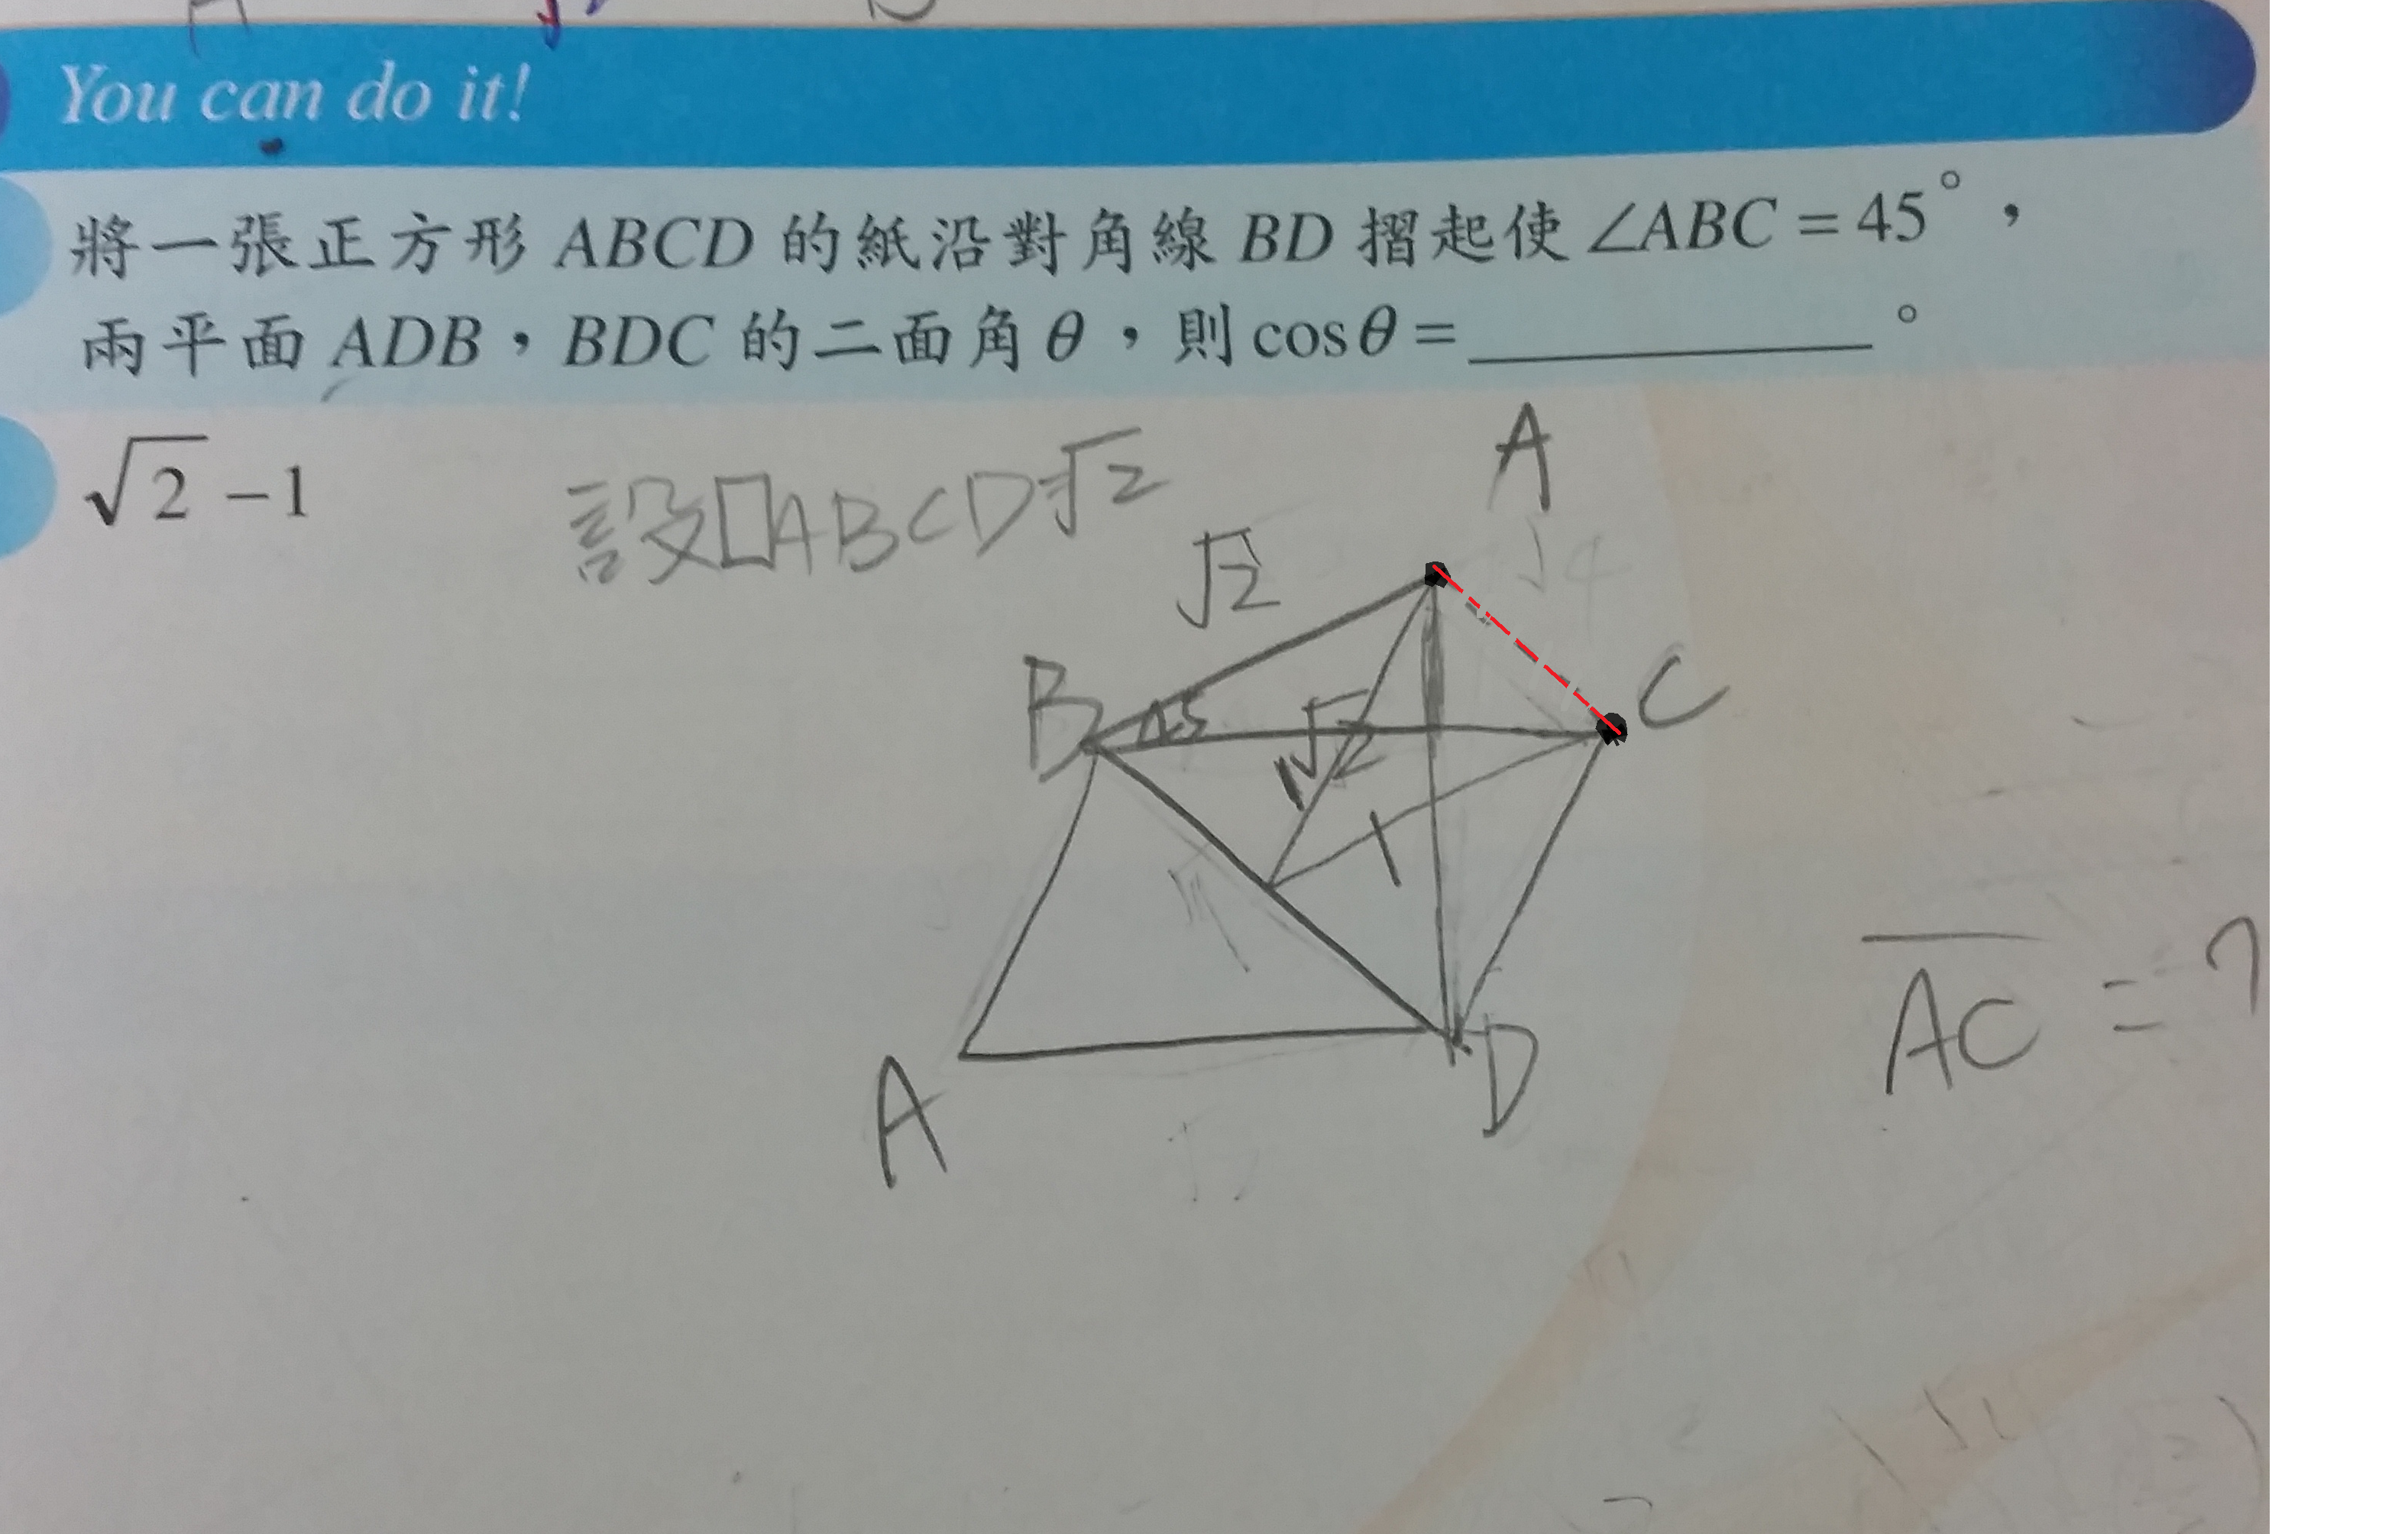 You can do it!
將一張正方形 ABCD 的紙沿對角線 BD 摺起使 ∠ABC = 45°，
兩平面 ADB，BDC 的二面角 θ，則 cosθ = ________ 。
√2 - 1
設□ABCD √2
A
√2
B
45
C
√2
1
1
D
A
AC = ?